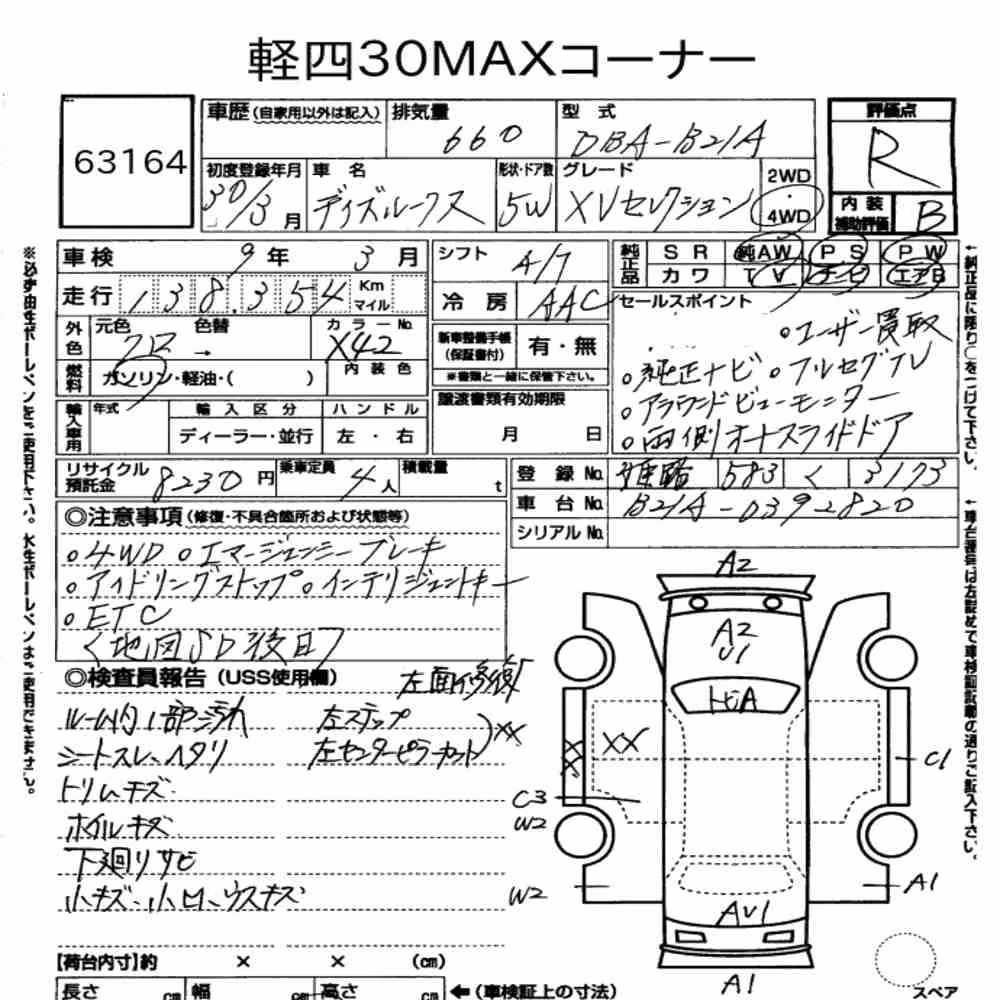 軽四30MAXコーナー
63164
車歴(自家用以外は記入) 排気量 660 型式 DBA-B21A
評価点 R
初度登録年月 30/3月 車名 ディズルークス 形状・ドア数 5W グレード XVセレクション 2WD・4WD
内装補助評価 B
車検 9年 3月 シフト A/T
純正品 SR 純AW PS PW
カワ TV ナビ エアB
走行 138,354 Km マイル 冷房 AAC
セールスポイント
。ユーザー買取
。純正ナビ 。フルセグTV
。アラウンドビューモニター
。両側オートスライドドア
外色 元色 色替 → カラーNo. X42
内装色
新車整備手帳(保証書付) 有・無
※書類と一緒に保管下さい。
燃料 ガソリン・軽油・( )
輸入車用 年式 輸入区分 ハンドル
ディーラー・並行 左・右
譲渡書類有効期限
月 日
リサイクル預託金 8230円 乗車定員 4人 積載量 t
登録No. 姫路 583 く 3173
車台No. B21A-0392820
シリアルNo.
◎注意事項(修復・不具合箇所および状態等)
。4WD 。エマージェンシーブレーキ
。アイドリングストップ 。インテリジェントキー
。ETC
〈地図SD後日〉
◎検査員報告(USS使用欄) 左面修復
ルーム内1部汚れ 左ステップ
シートスレ、ヘタリ 左センターピラーカット )XX
トリムキズ
ホイルキズ
下廻りサビ
小キズ、小凹、ウスキズ
【荷台内寸】約 × × (cm)
長さ cm 幅 cm 高さ cm ←(車検証上の寸法)
A2
A2
U1
トビA
XX
XX
C1
C3
W2
W2
A1
AU1
A1
スペア
※必ず油性ボールペンをご使用下さい。水性ボールペンはご使用できません。
←純正品に限り○をつけて下さい。
←車台番号は左詰めで車検証記載の通りご記入下さい。